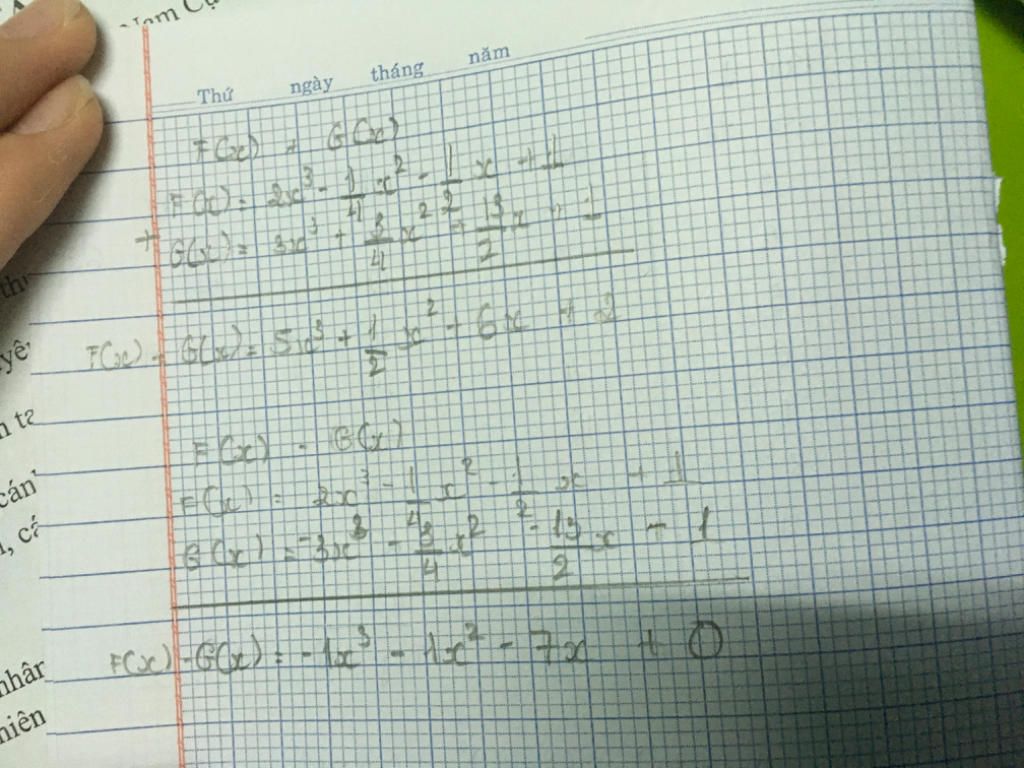 Nam Cự
Thứ ngày tháng năm
F(x) + G(x)
F(x) = 2x³ - 1/4 x² - 1/2 x + 1
+
G(x) = 3x³ + 3/4 x² + 13/2 x + 1
F(x) + G(x) = 5x³ + 1/2 x² + 6x + 2
F(x) - G(x)
F(x) = 2x³ - 1/4 x² - 1/2 x + 1
G(x) = -3x³ - 3/4 x² - 13/2 x - 1
F(x) - G(x) = -1x³ - 1x² - 7x + 0
nhân
hiên